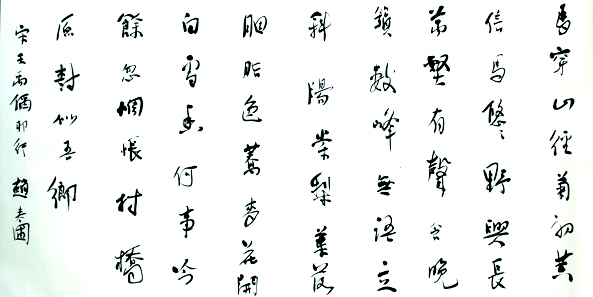 馬穿山徑菊初黃
信馬悠〻野興長
萬壑有聲含晚
籟數峰無語立
斜陽棠梨葉落
胭脂色蕎麥花開
白雪香何事吟
餘忽惆悵村橋
原樹似吾鄉
宋王禹偁邨行 趙國